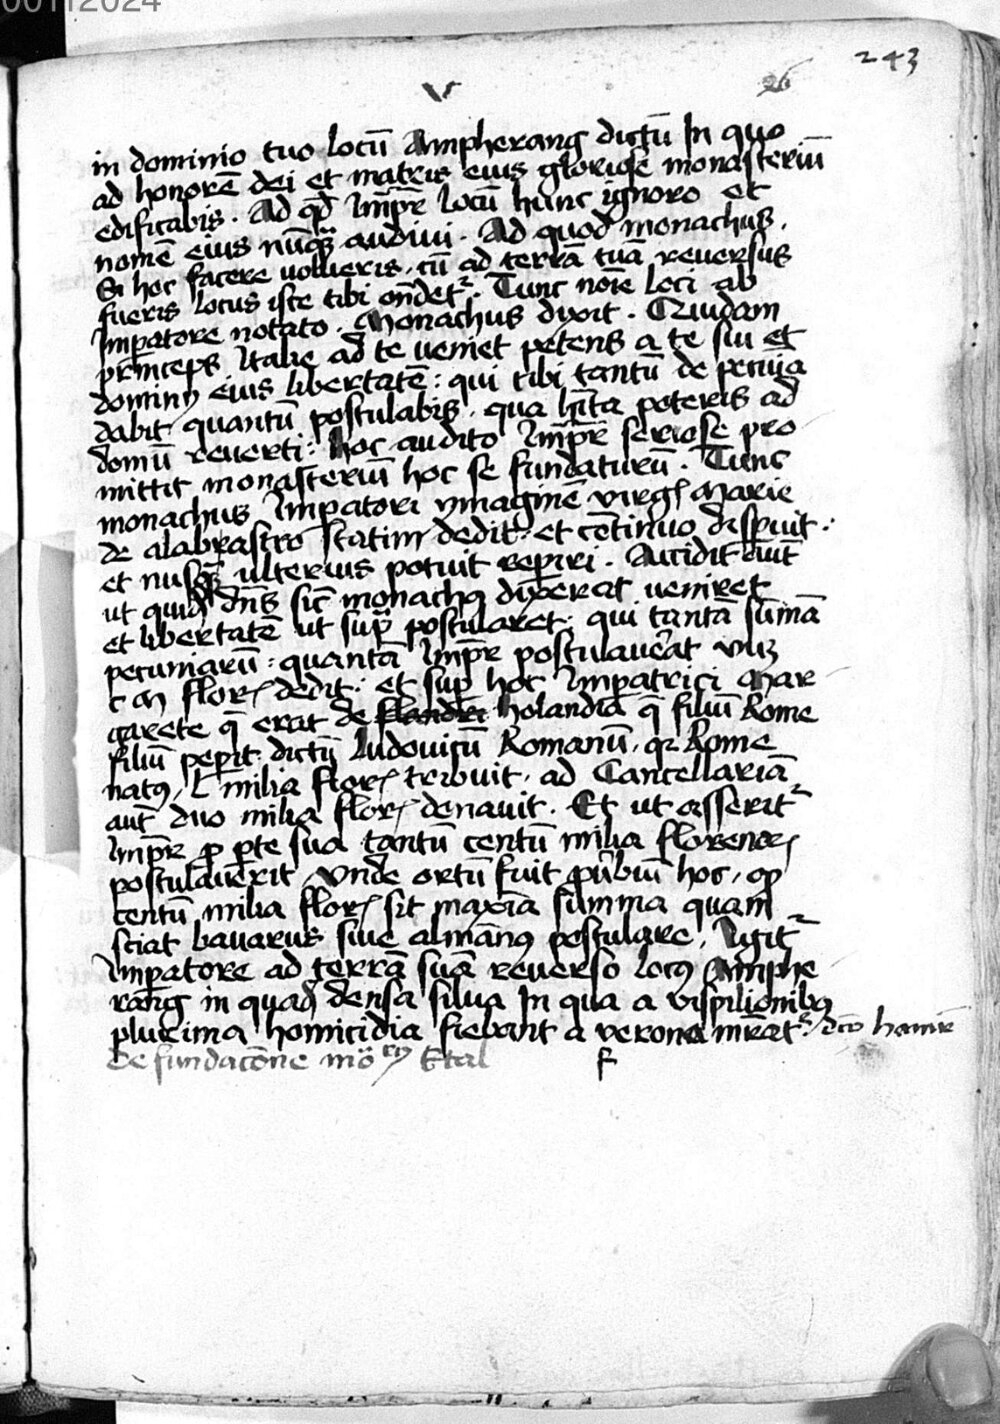 00112024
243
v 26
in dominio tuo locū Ampherang dictū In quo
ad honorē dei et matris eius gloriose monasteriū
edificabis. Ad qd Impr̄ locū hunc ignoro et
nomē eius nūq̄ audiui. Ad quod monachus.
Si hoc facere volueris, cū ad terrā tuā reuersus
fueris locus iste tibi ondet᷑. Tunc nom̄e loci ab
Impatore notato. Monachus dixit. Quidam
princeps Italie ad te veniet petens a te sui et
dominy eius libertatē: qui tibi tantū de pecūia
dabit quantū postulabis, qua hīta poteris ad
domū reuerti: Hoc audito Impr̄ seriose pro
mittit monasteriū hoc se fundaturū. Tunc
monachus Impatori ymaginē virgꝭ Marie
de alabrastro statim dedit: et cōtinuo dispuit:
et nusq̄ ulterius potuit repiri. Accidit
ut quidā dn̄s sic monachꝰ dixerat veniret
et libertatē ut sup̄ postularet: qui tantā sūmā
pecuniarū: quantā Impr̄ postulauerat
c M florꝭ dedit: et sup hoc Impatrici Mar
garete q̄ erat de flandri holandia q̄ filiū Rome
filiū pepit dictū Ludouicū Romanū, qꝛ Rome
natꝰ, L milia florꝭ tribuit, ad Cancellariā
aut̄ duo milia florꝭ donauit. Et ut asserit᷑
Impr̄ p pte sua tantū centū milia florenoꝝ
postulauerit, vnde ortū fuit puerbiū hoc, qp
centū milia florꝭ sit maxīa summa quam
sciat bauarus siue almānꝰ postulare, Igit᷑
Impatore ad terrā suā reuerso locꝰ Amphe
rang in quadā densa silua In qua a vispilionibꝰ
plurima homicidia fiebant a verona
de fundacōne mō Etal